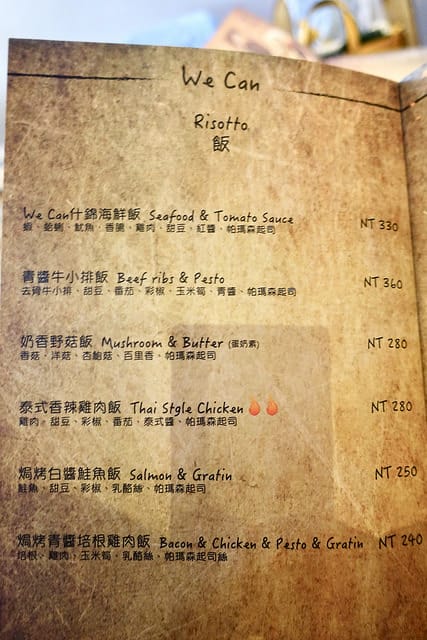 We Can
Risotto
飯
We Can什錦海鮮飯 Seafood & Tomato Sauce NT 330
蝦、蛤蜊、魷魚、香腸、雞肉、甜豆、紅醬、帕瑪森起司
青醬牛小排飯 Beef ribs & Pesto NT 360
去骨牛小排、甜豆、番茄、彩椒、玉米筍、青醬、帕瑪森起司
奶香野菇飯 Mushroom & Butter (蛋奶素) NT 280
香菇、洋菇、杏鮑菇、百里香、帕瑪森起司
泰式香辣雞肉飯 Thai Style Chicken NT 280
雞肉、甜豆、彩椒、番茄、泰式醬、帕瑪森起司
焗烤白醬鮭魚飯 Salmon & Gratin NT 250
鮭魚、甜豆、彩椒、乳酪絲、帕瑪森起司
焗烤青醬培根雞肉飯 Bacon & Chicken & Pesto & Gratin NT 240
培根、雞肉、玉米筍、乳酪絲、帕瑪森起司絲